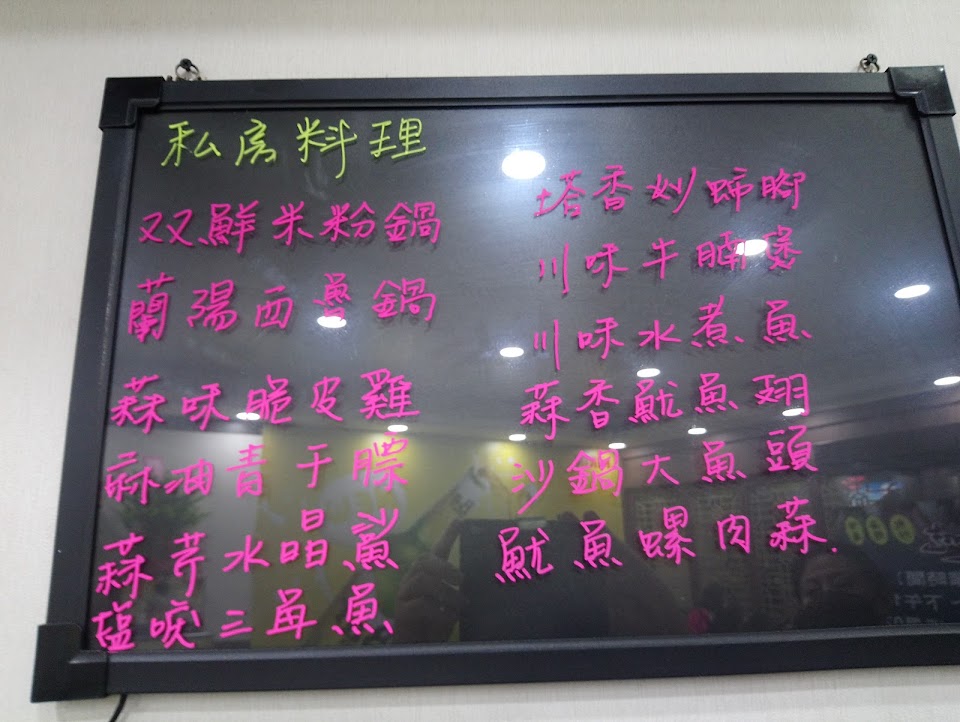 私房料理
双鮮米粉鍋
蘭陽西魯鍋
蒜味脆皮雞
麻油青干膘
蒜芹水晶鯊
塩唳三角魚
塔香妙蹄腳
川味牛腩煲
川味水煮魚
蒜香魷魚翅
沙鍋大魚頭
魷魚螺肉蒜.